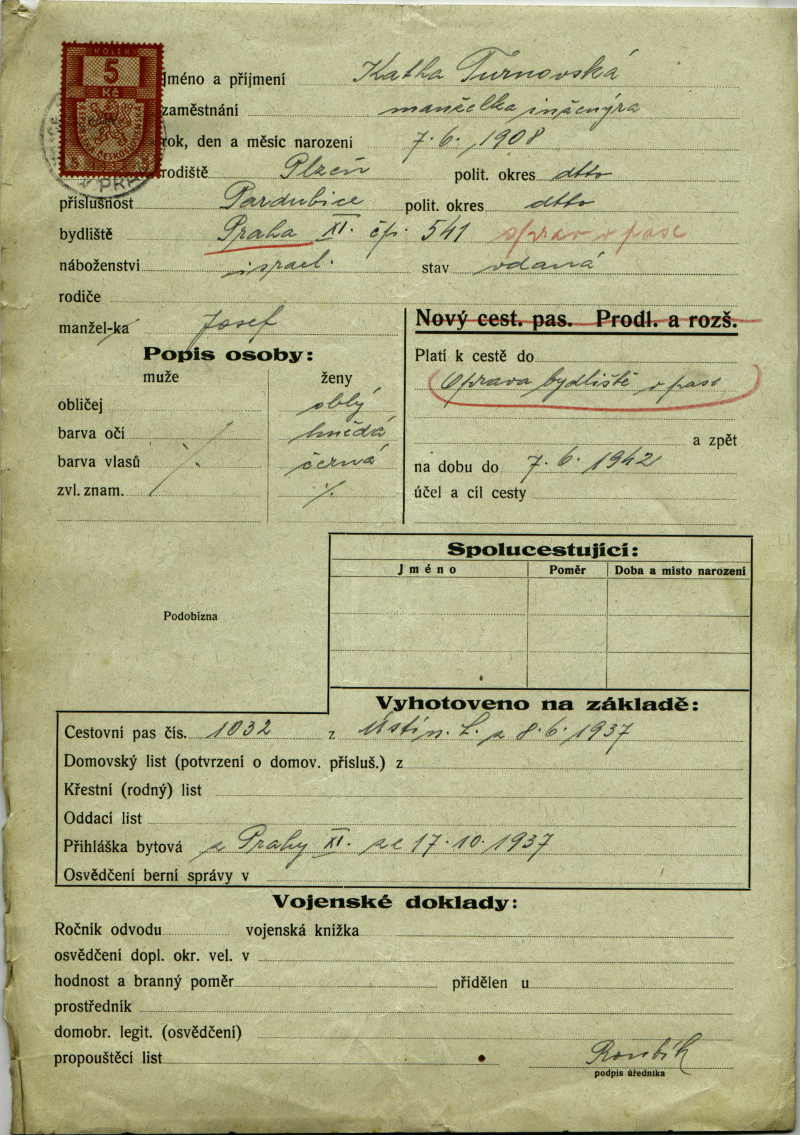 KOLEK
5
Kč
Jméno a příjmení Katha Turnovská
zaměstnání manželka inženýra
rok, den a měsíc narození 7. 6. 1908
rodiště Plzeň polit. okres dtto
příslušnost Pardubice polit. okres dtto
bydliště Praha XI. čp. 541 oprav v pase
náboženství israel. stav vdaná
rodiče
manžel-ka Josef
Nový cest. pas. Prodl. a rozš.
Popis osoby:
muže ženy
Platí k cestě do
Oprava bydliště v pase
obličej oblý
barva očí hnědá
a zpět
barva vlasů černá
na dobu do 7. 6. 1942
zvl. znam. %
účel a cíl cesty
Spolucestující:
Jméno Poměr Doba a místo narození
Podobizna
Vyhotoveno na základě:
Cestovní pas čís. 1032 z Ústí n. L. z 8. 6. 1937
Domovský list (potvrzení o domov. přísluš.) z
Křestní (rodný) list
Oddací list
Přihláška bytová z Prahy XI. ze 17. 10. 1937
Osvědčení berní správy v
Vojenské doklady:
Ročník odvodu vojenská knížka
osvědčení dopl. okr. vel. v
hodnost a branný poměr přidělen u
prostředník
domobr. legit. (osvědčení)
propouštěcí list
podpis úředníka